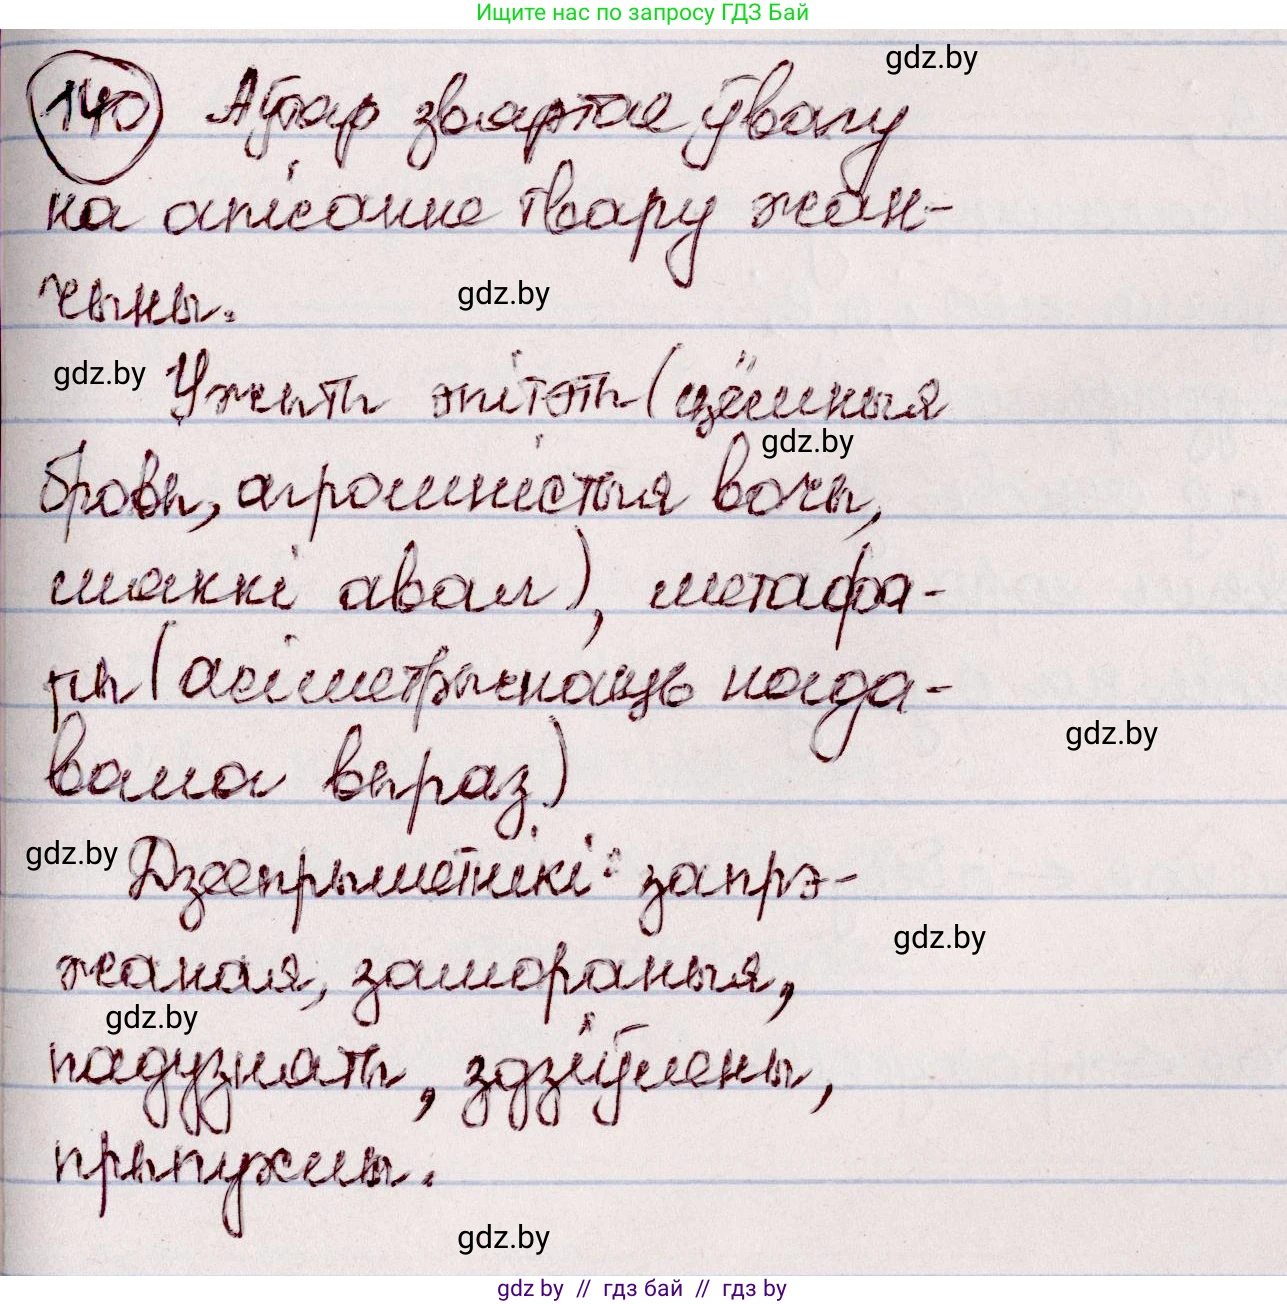 Ищите нас по запросу ГДЗ Бай
gdz.by
140 Аўтар звяртае ўвагу
на апісанне твару жан-
чыны.
gdz.by
gdz.by
Ужыты эпітэты (цёмныя
gdz.by
бровы, агромністыя вочы,
мяккі авал), метафа-
ры (асіметрычнасць нада-
вала выраз)
gdz.by
gdz.by
Дзеепрыметнікі: запрэ-
gdz.by
жаная, замораныя,
gdz.by
падузняты, здзіўлены,
прыпужны.
gdz.by
gdz by // гдз бай // гдз by